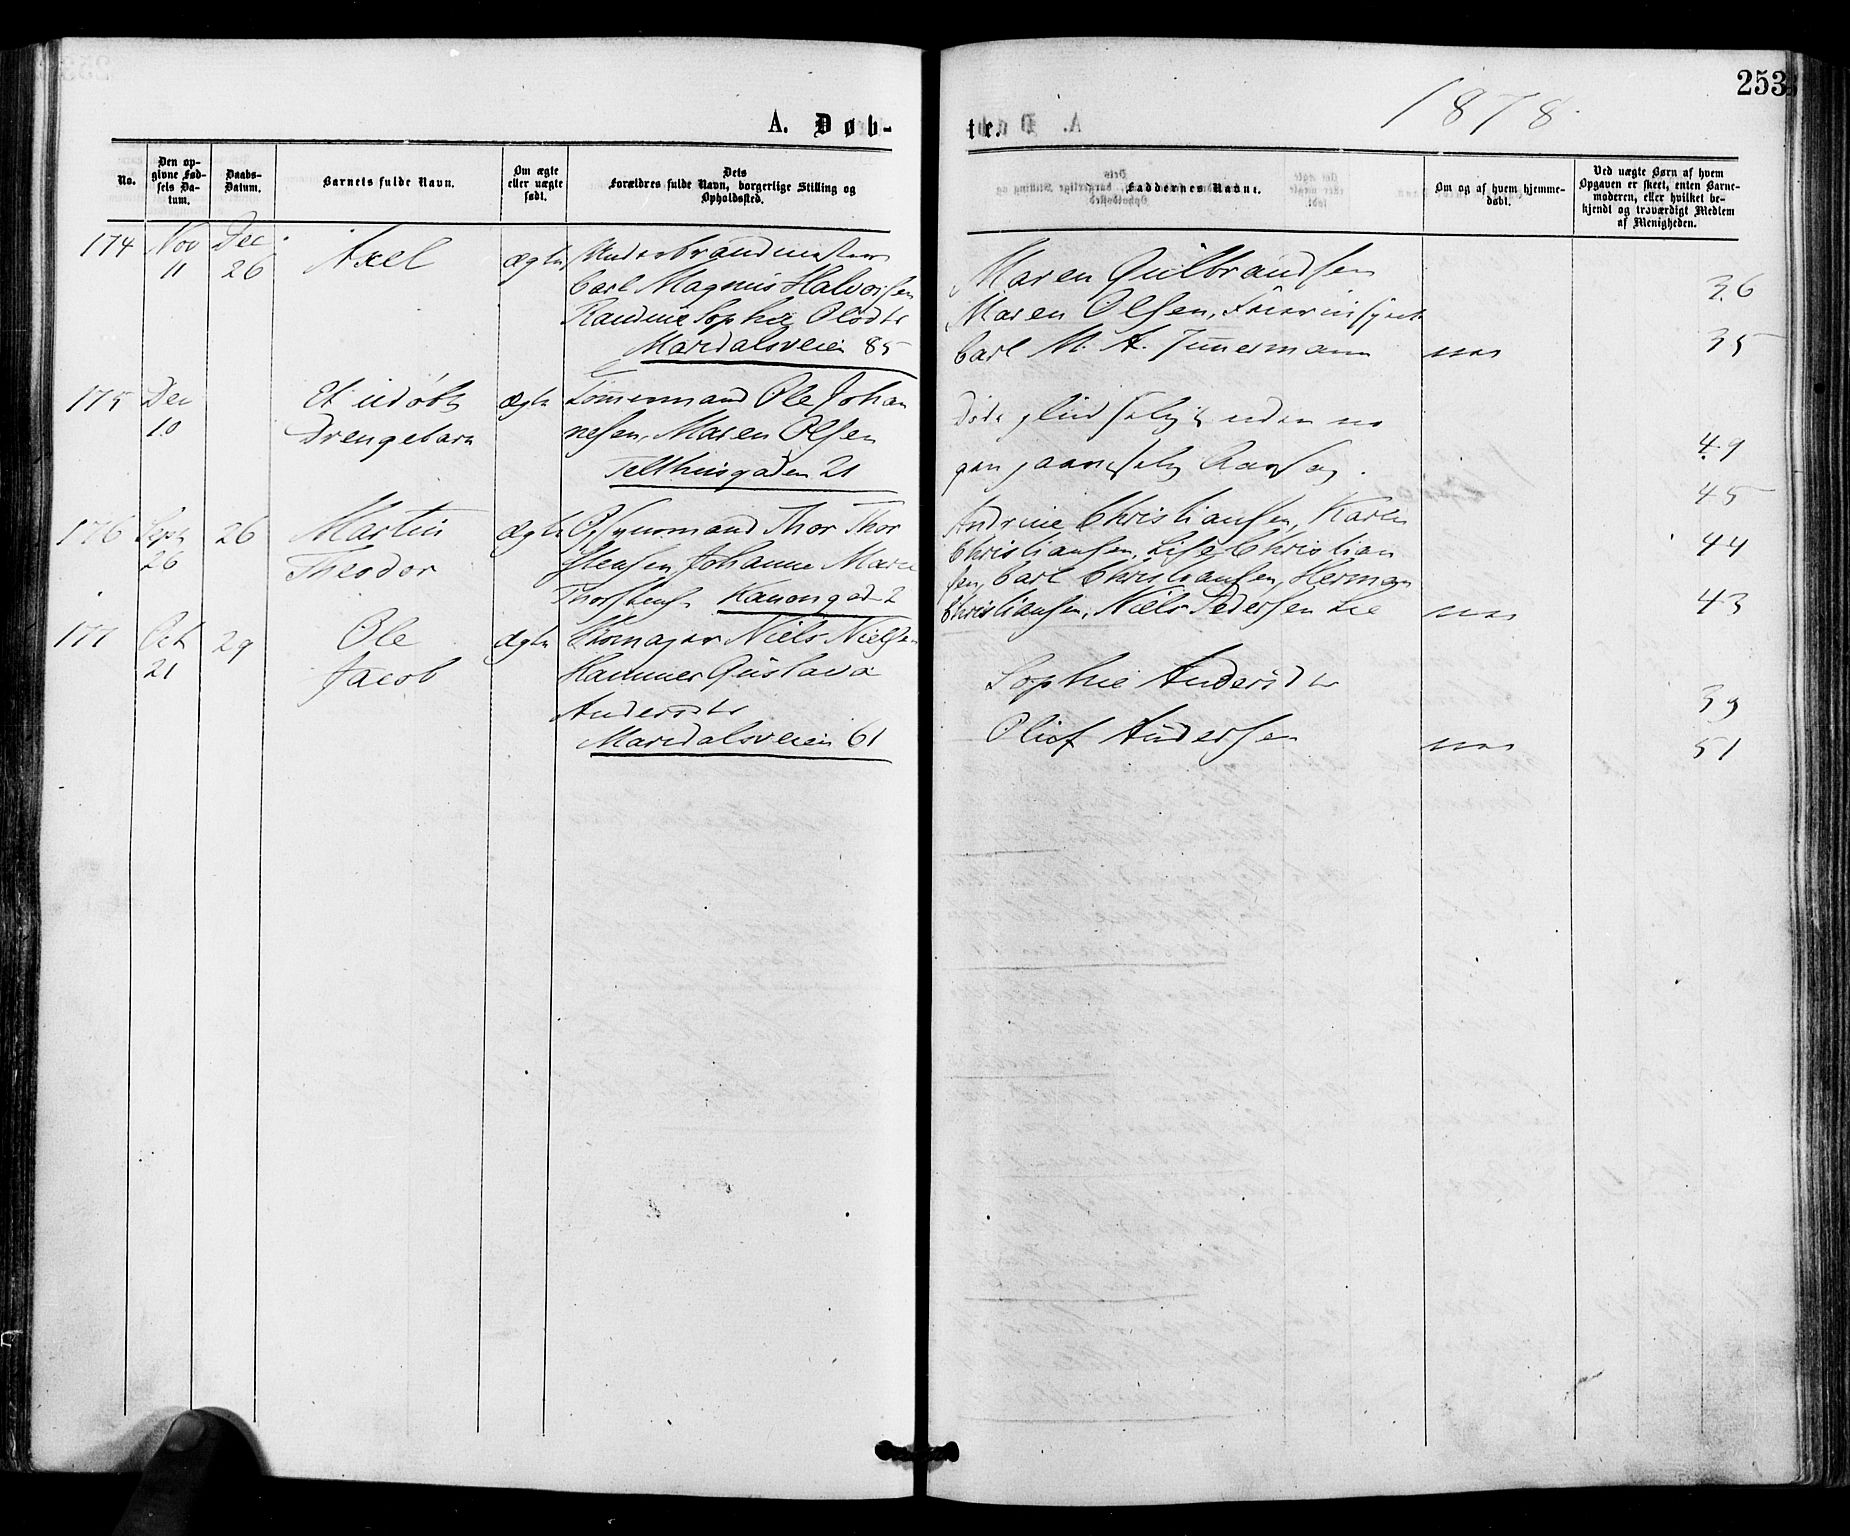 253
1878.
A. Døb-
te.
No.
Den op-
givne Fød-
sels Da-
tum.
Daabs-
Datum.
Barnets fulde Navn.
Om ægte
eller uægte
født.
Dets
Forældres fulde Navn, borgerlige Stilling og
Opholdssted.
Faddernes Navne.
Om og af hvem hjemme-
døbt.
Ved uægte Børn af hvem
Opgaven er skeet, enten Barne-
moderen, eller hvilket be-
kjendt og troværdigt Medlem
af Menigheden.
174 Nov Dec. Axel ægte Underbrandmester
11 26 Carl Magnus Halvorsen
Sophie Olsdtr
Maridalsveien 85
Maren Gulbrandsen 36
Maren Olsen,
Carl M. A. Timmermann 35
175 Dec Et udøbt ægte Tømmermand Ole Johan
10 Drengebarn nesen, Maren Olsen
Telthusgaden 21
uden no 49
gen 45
176 Sept 26 Martin ægte Opsynsmand Thor Thor
26 Theodor stensen Johanne Marie
Kanongad 2
Andrine Christiansen, Karen
Christiansen, Lise Christian 44
sen, Carl Christiansen, Herman
Christiansen, Niels Pedersen Lie 43
177 Oct 29 Ole ægte Skomager Niels Nielsen
21 Jacob Hammer Gustava
Andersdtr
Maridalsveien 61
Sophie Andersdtr 39
Oluf Andersen 51